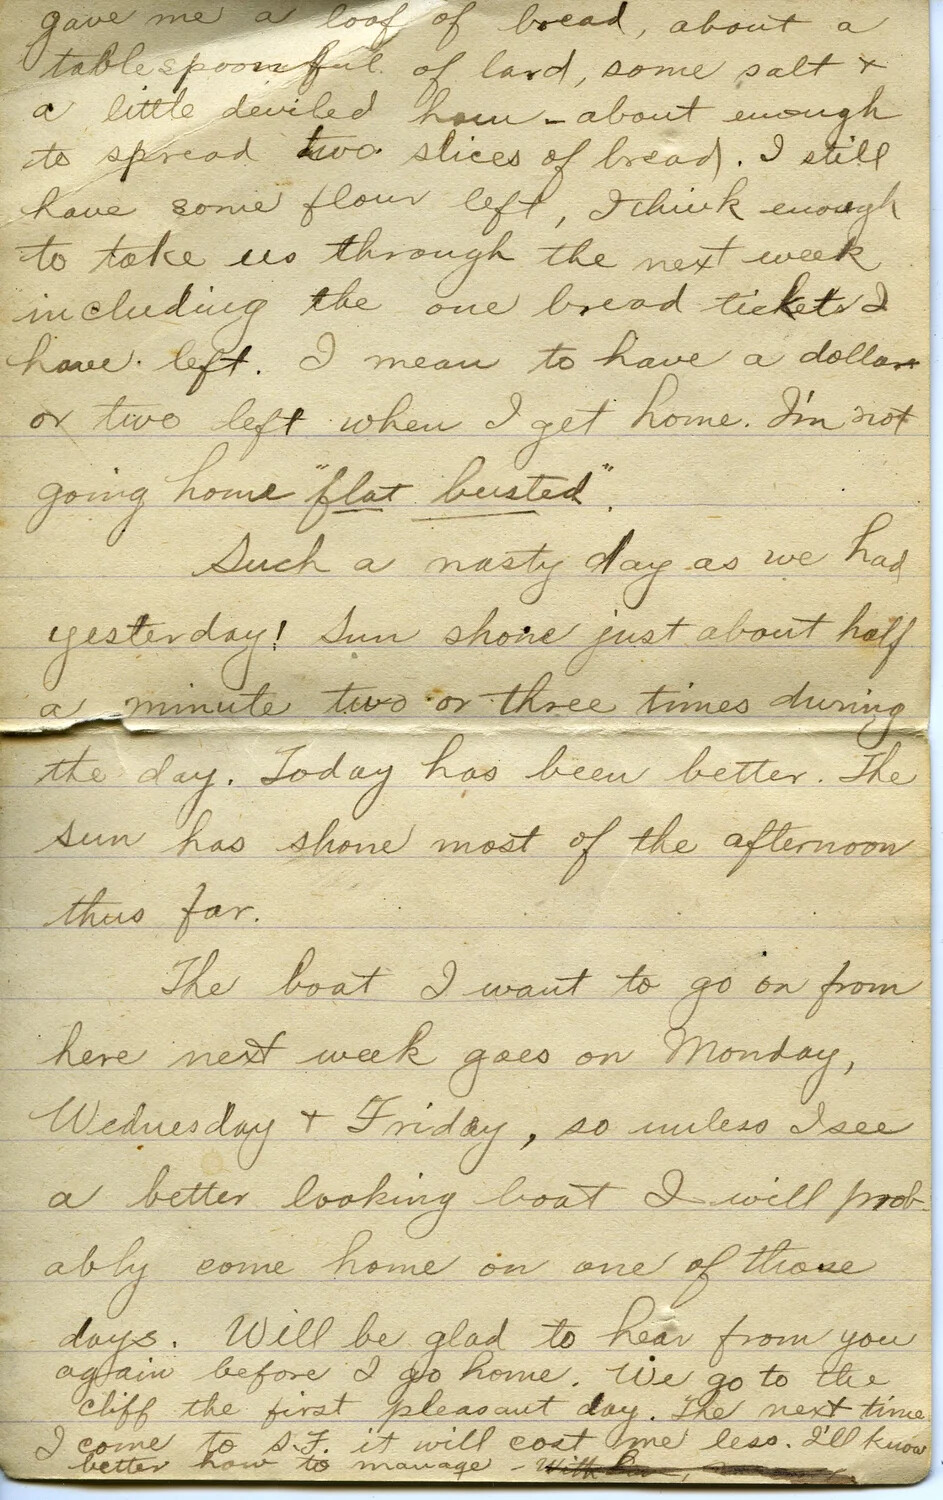 gave me a loaf of bread, about a
tablespoonful of lard, some salt +
a little deviled ham - about enough
to spread two slices of bread. I still
have some flour left, I think enough
to take us through the next week
including the one bread tickets I
have left. I mean to have a dollar
or two left when I get home. I'm not
going home "flat busted".
Such a nasty day as we had
yesterday! Sun shone just about half
a minute two or three times during
the day. Today has been better. The
sun has shone most of the afternoon
thus far.
The boat I want to go on from
here next week goes on Monday,
Wednesday + Friday, so unless I see
a better looking boat I will prob-
ably come home on one of those
days. Will be glad to hear from you
again before I go home. We go to the
cliff the first pleasant day. The next time
I come to S.F. it will cost me less. I'll know
better how to manage -